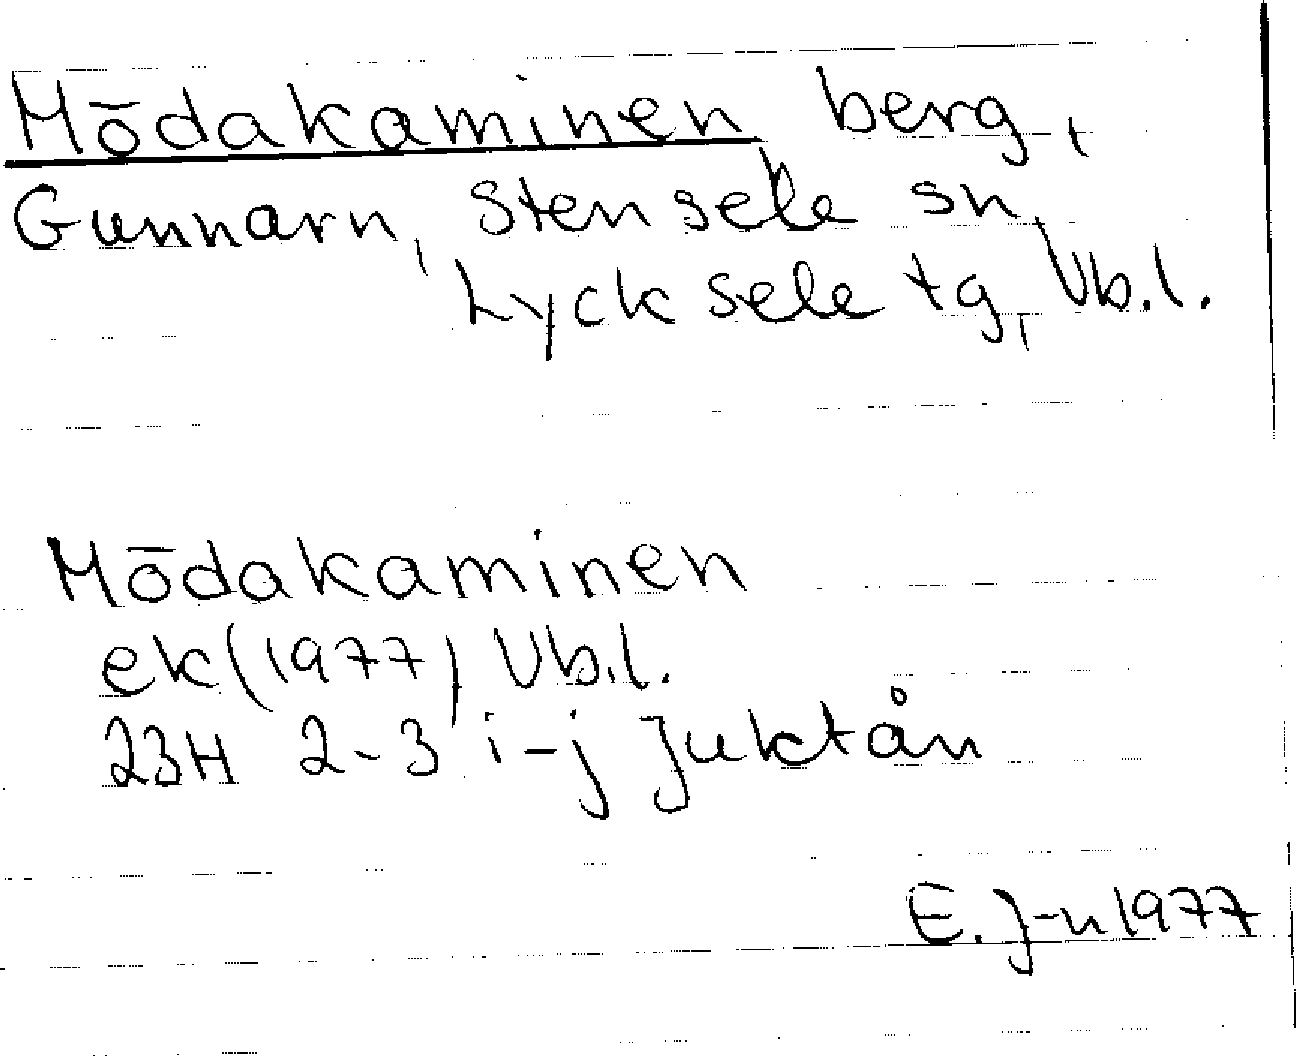 Mōdakaminen berg,
Gunnarn, Stensele sn,
Lycksele tg, Vb.l.
Mōdakaminen
ek(1977) Vb.l.
23H 2-3 i-j Juktån
E. J-n 1977